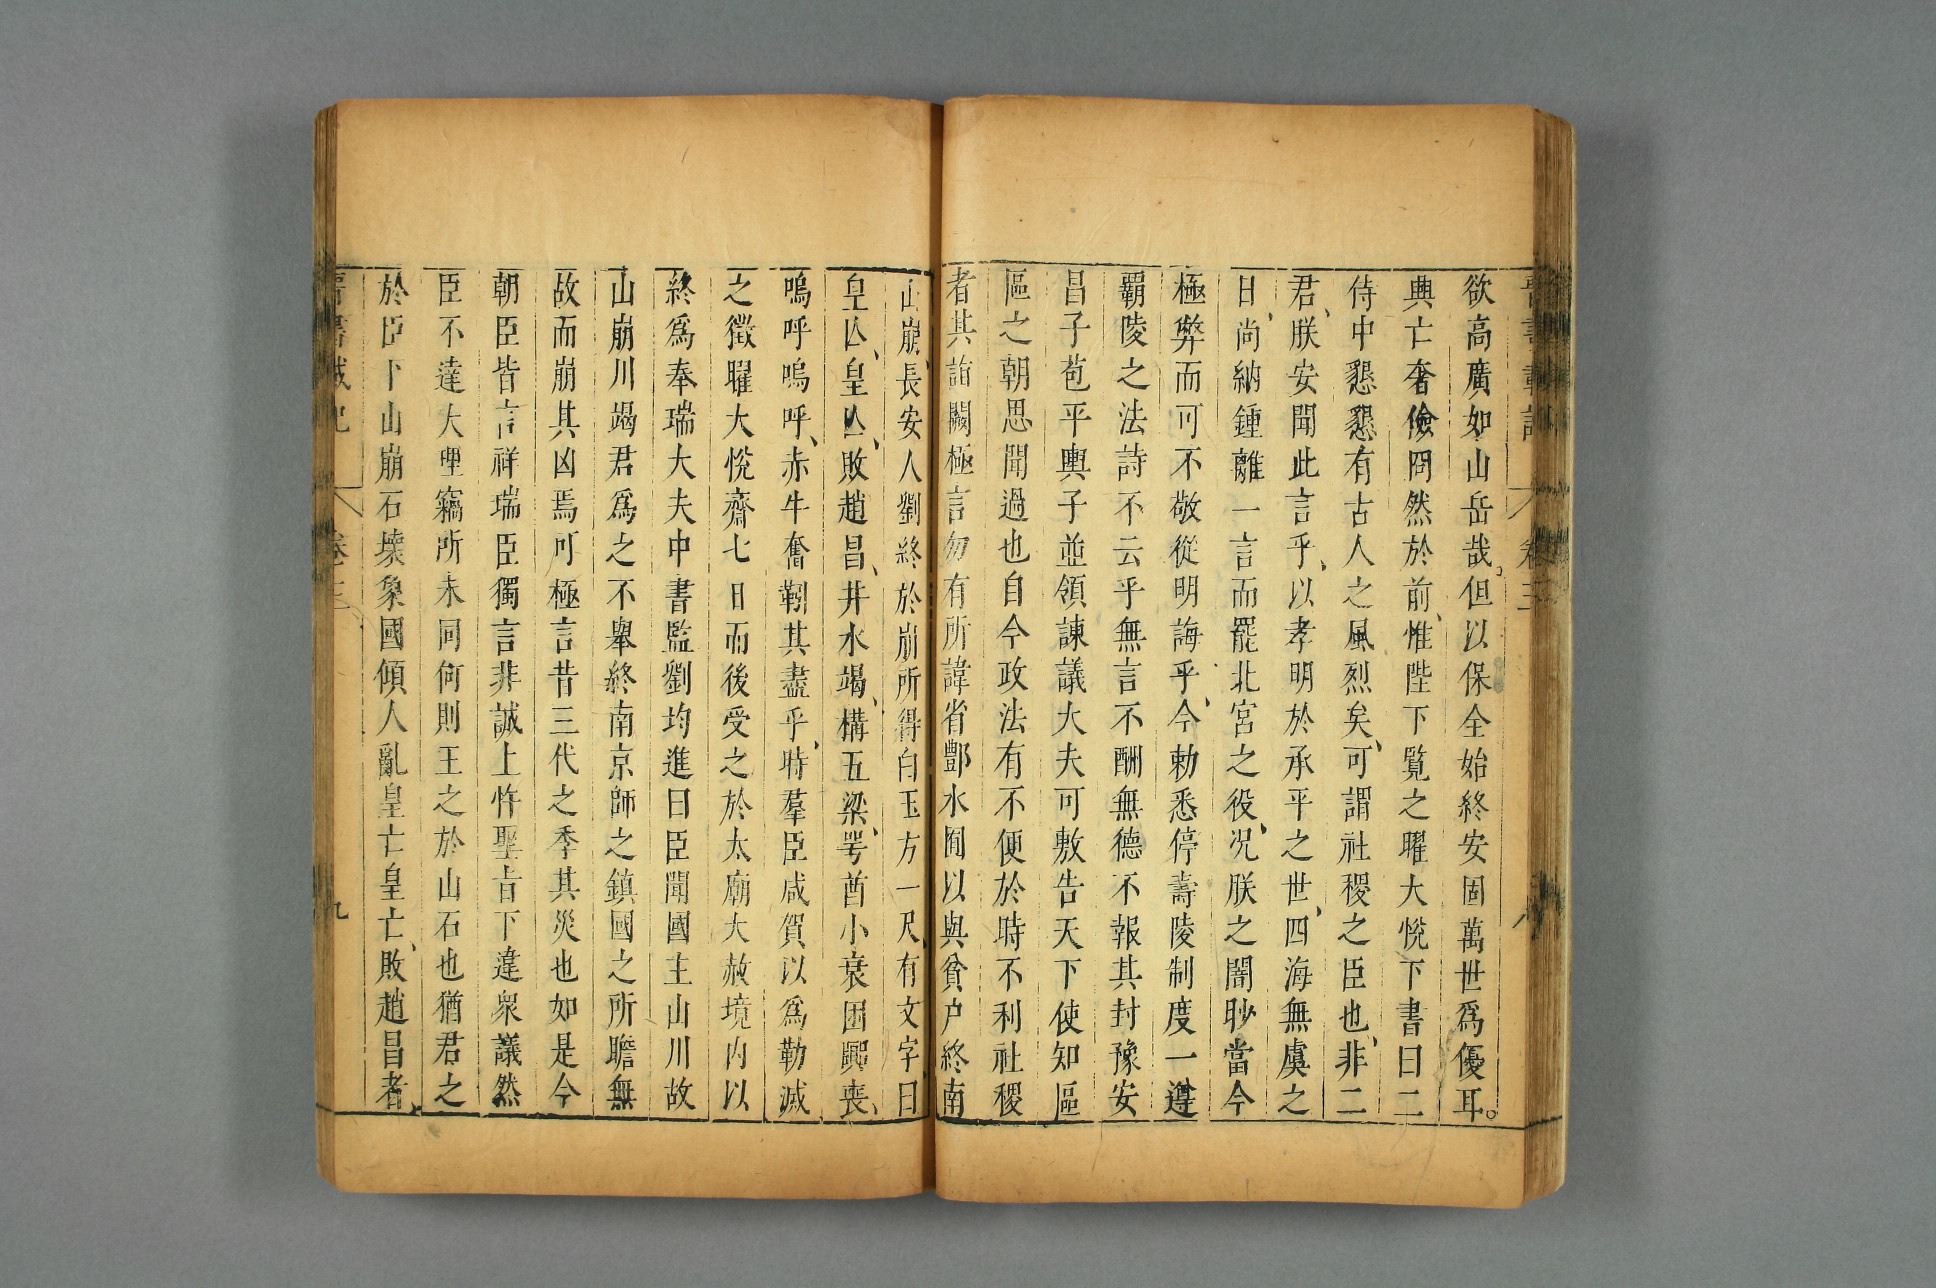 欲高廣如山岳哉但以保全始終安固萬世爲優耳。
興亡奢儉冏然於前、惟陛下覽之曜大悅下書曰二
侍中懇懇有古人之風烈矣、可謂社稷之臣也、非二
君、朕安聞此言乎、以孝明於承平之世、四海無虞之
日、尚納鍾離一言而罷北宮之役、況朕之闇眇當今
極弊而可不敬從明誨乎、今勅悉停壽陵制度一遵
霸陵之法詩不云乎無言不酬無德不報其封豫安
昌子苞平輿子並領諫議大夫可敷告天下使知區
區之朝思聞過也自今政法有不便於時不利社稷
者其詣闕極言勿有所諱省酆水囿以與貧戶終南
山崩、長安人劉終於崩所得白玉方一尺、有文字、曰
皇亾、皇亾、敗趙昌、井水竭、構五梁、咢酋小衰困嚻喪、
嗚呼嗚呼、赤牛奮靷其盡乎、時羣臣咸賀以爲勒滅
之徵曜大悅齋七日而後受之於太廟大赦境內以
終爲奉瑞大夫中書監劉均進曰臣聞國主山川故
山崩川竭君爲之不舉終南京師之鎮國之所瞻無
故而崩其凶焉可極言昔三代之季其災也如是今
朝臣皆言祥瑞臣獨言非誠上忤聖旨下違衆議然
臣不達大理竊所未同何則王之於山石也猶君之
於臣下山崩石壞象國傾人亂皇亡皇亡、敗趙昌者、
卷三
九
卷三
八